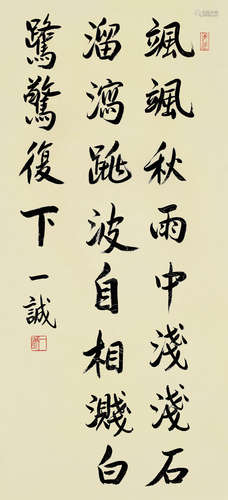 颯颯秋雨中淺淺石
溜瀉跳波自相濺白
鷺驚復下
一誠